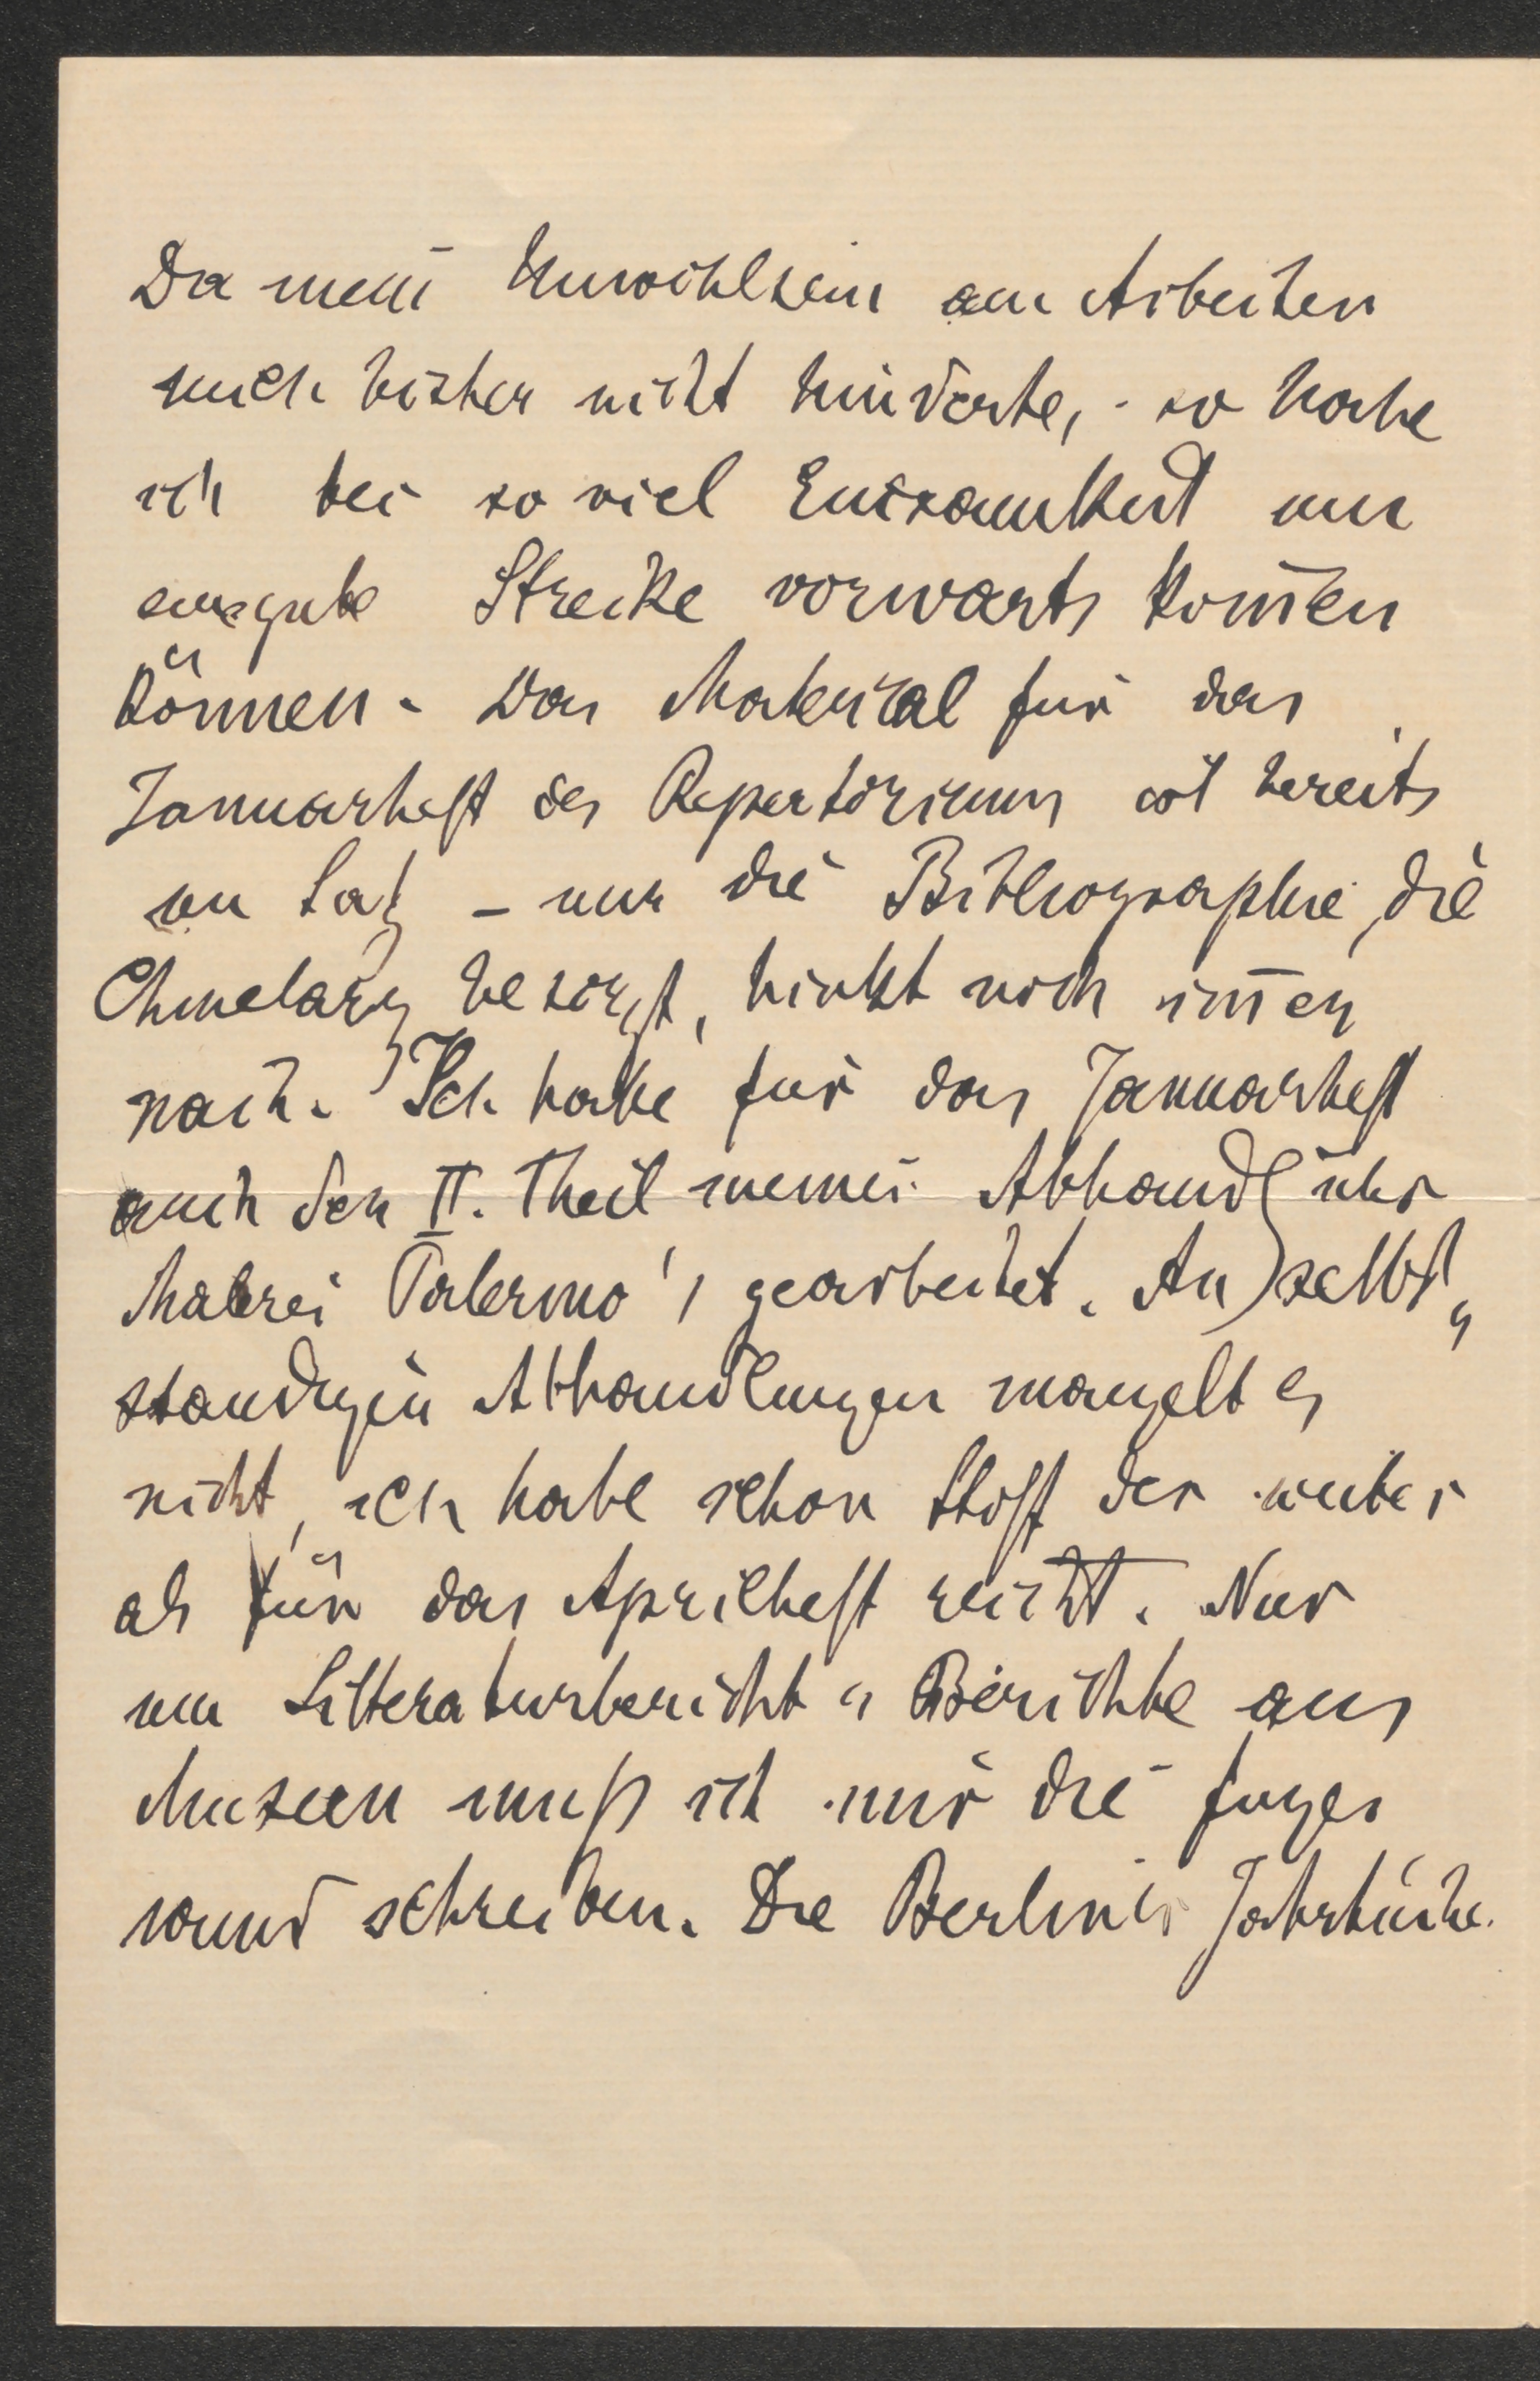 Da mein Unwohlsein am Arbeiten
mich bisher nicht hinderte, - so habe
ich bei so viel Einsamkeit nur
eine gute Strecke vorwärts kom̅en
können. Das Material für das
Januarheft des Repertoriums ist bereits
im Satz – nur die Bibliographie, die
Chmelarz besorgt, hinkt noch im̅er
nach. Ich habe für das Januarheft
auch den II. Theil meiner Abhandl über
Malerei Palermo's gearbeitet. An selbst„
ständigen Abhandlungen mangelt es
nicht, ich habe schon Stoff der weiter
als für das Aprilheft reicht. Nur
um Litteraturbericht u Berichte aus
Museen muß ich mir die Finger
wund schreiben. Die Berliner Jahrbüche